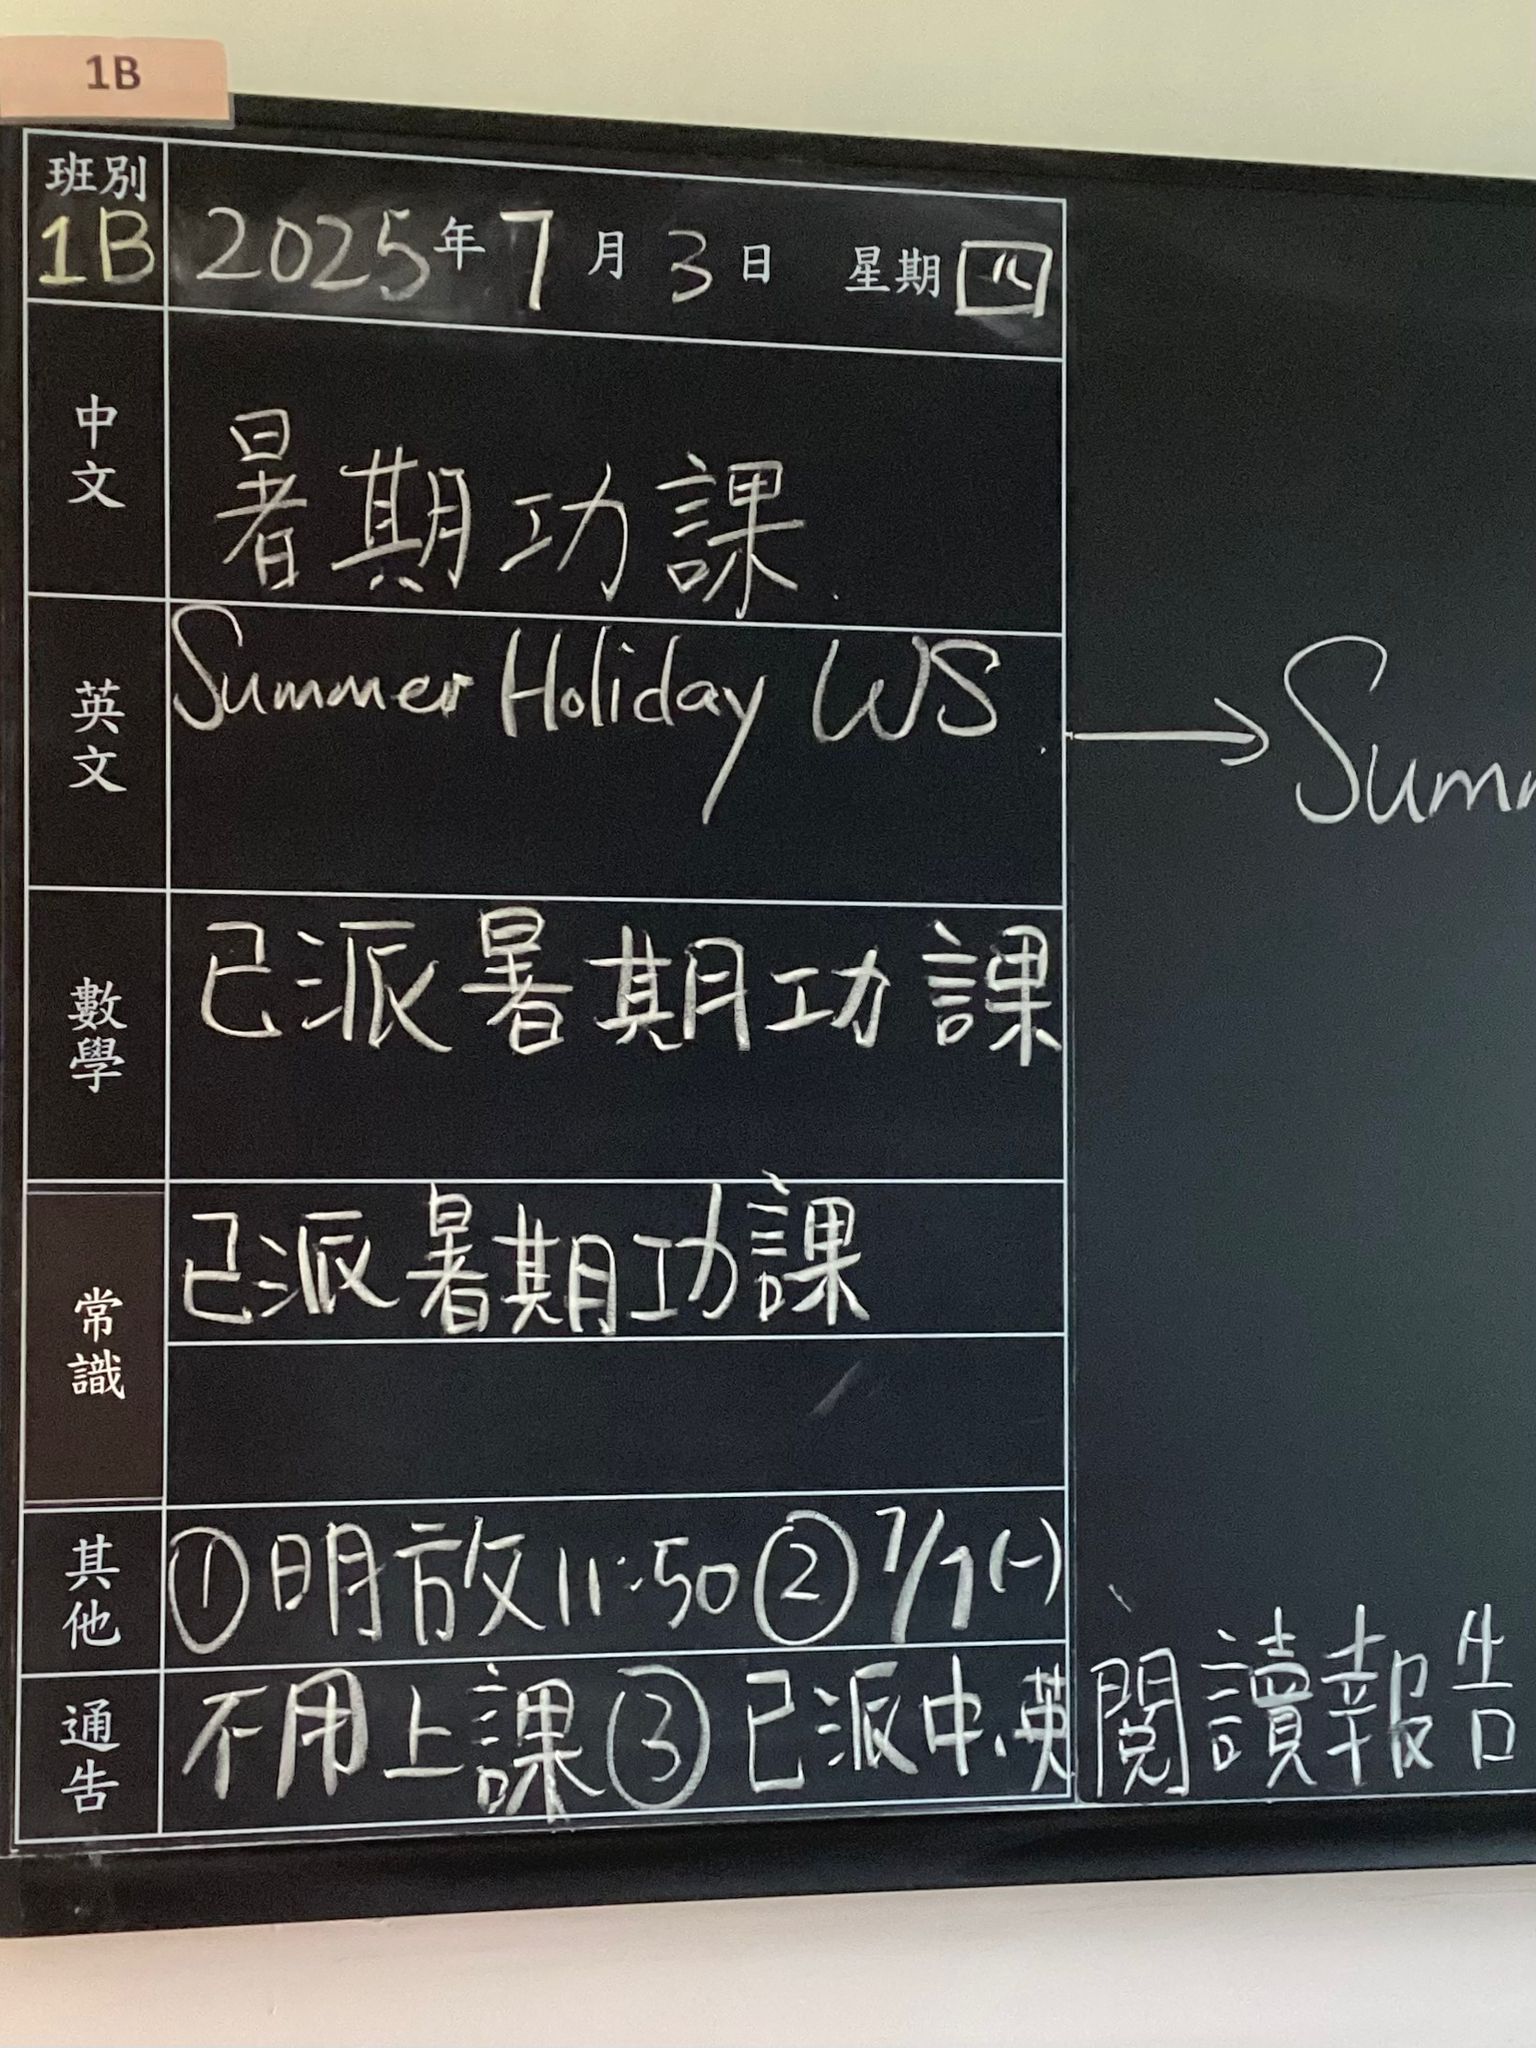 1B
班別
1B
2025年7月3日 星期四
中文
暑期功課
英文
Summer Holiday WS → Summ
數學
已派暑期功課
常識
已派暑期功課
其他
①明放11:50②7/7(一)
通告
不用上課③已派中、英閱讀報告